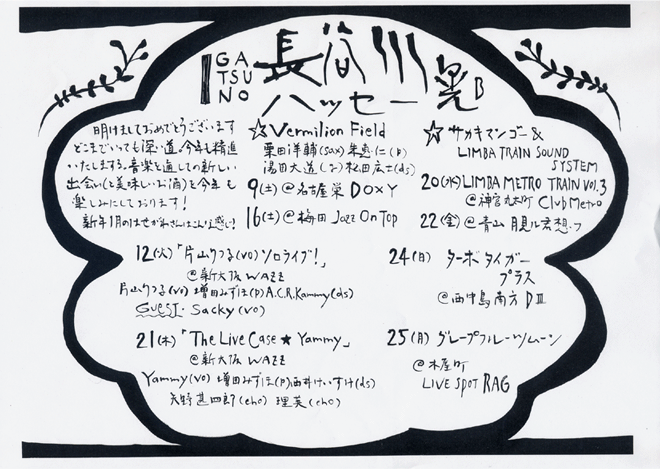 I GATSU NO
長谷川晃 B
ハッセー
明けましておめでとうございます
どこまでいっても深い道、今年も精進
いたします。音楽を通しての新しい
出会い(と美味しいお酒)を今年も
楽しみにしております!
新年1月のはせがわさんはこんな感じ!
☆Vermilion Field
栗田洋輔(sax) 朱恵仁(p)
湯田大道(g) 松田広士(ds)
9(土)@名古屋栄 DOXY
16(土)@梅田 Jazz On Top
☆サカキマンゴー&
LIMBA TRAIN SOUND
SYSTEM
20(水)LIMBA METRO TRAIN Vol.3
@神宮丸太町 Club Metro
22(金)@青山 月見ル君想フ
12(火)「片山りつる(vo)ソロライブ!」
@新大阪 WAZZ
片山りつる(vo) 増田みずほ(p) A.C.R.Kammy(ds)
GUEST・Sacky(vo)
21(木)「The Live Case★Yammy」
@新大阪 WAZZ
Yammy(vo) 増田みずほ(p)西井けいすけ(ds)
矢野甚四郎(cho) 理英(cho)
24(日) ターボタイガー
プラス
@西中島南方 DⅢ
25(月) グレープフルーツムーン
@木屋町
LIVE SPOT RAG